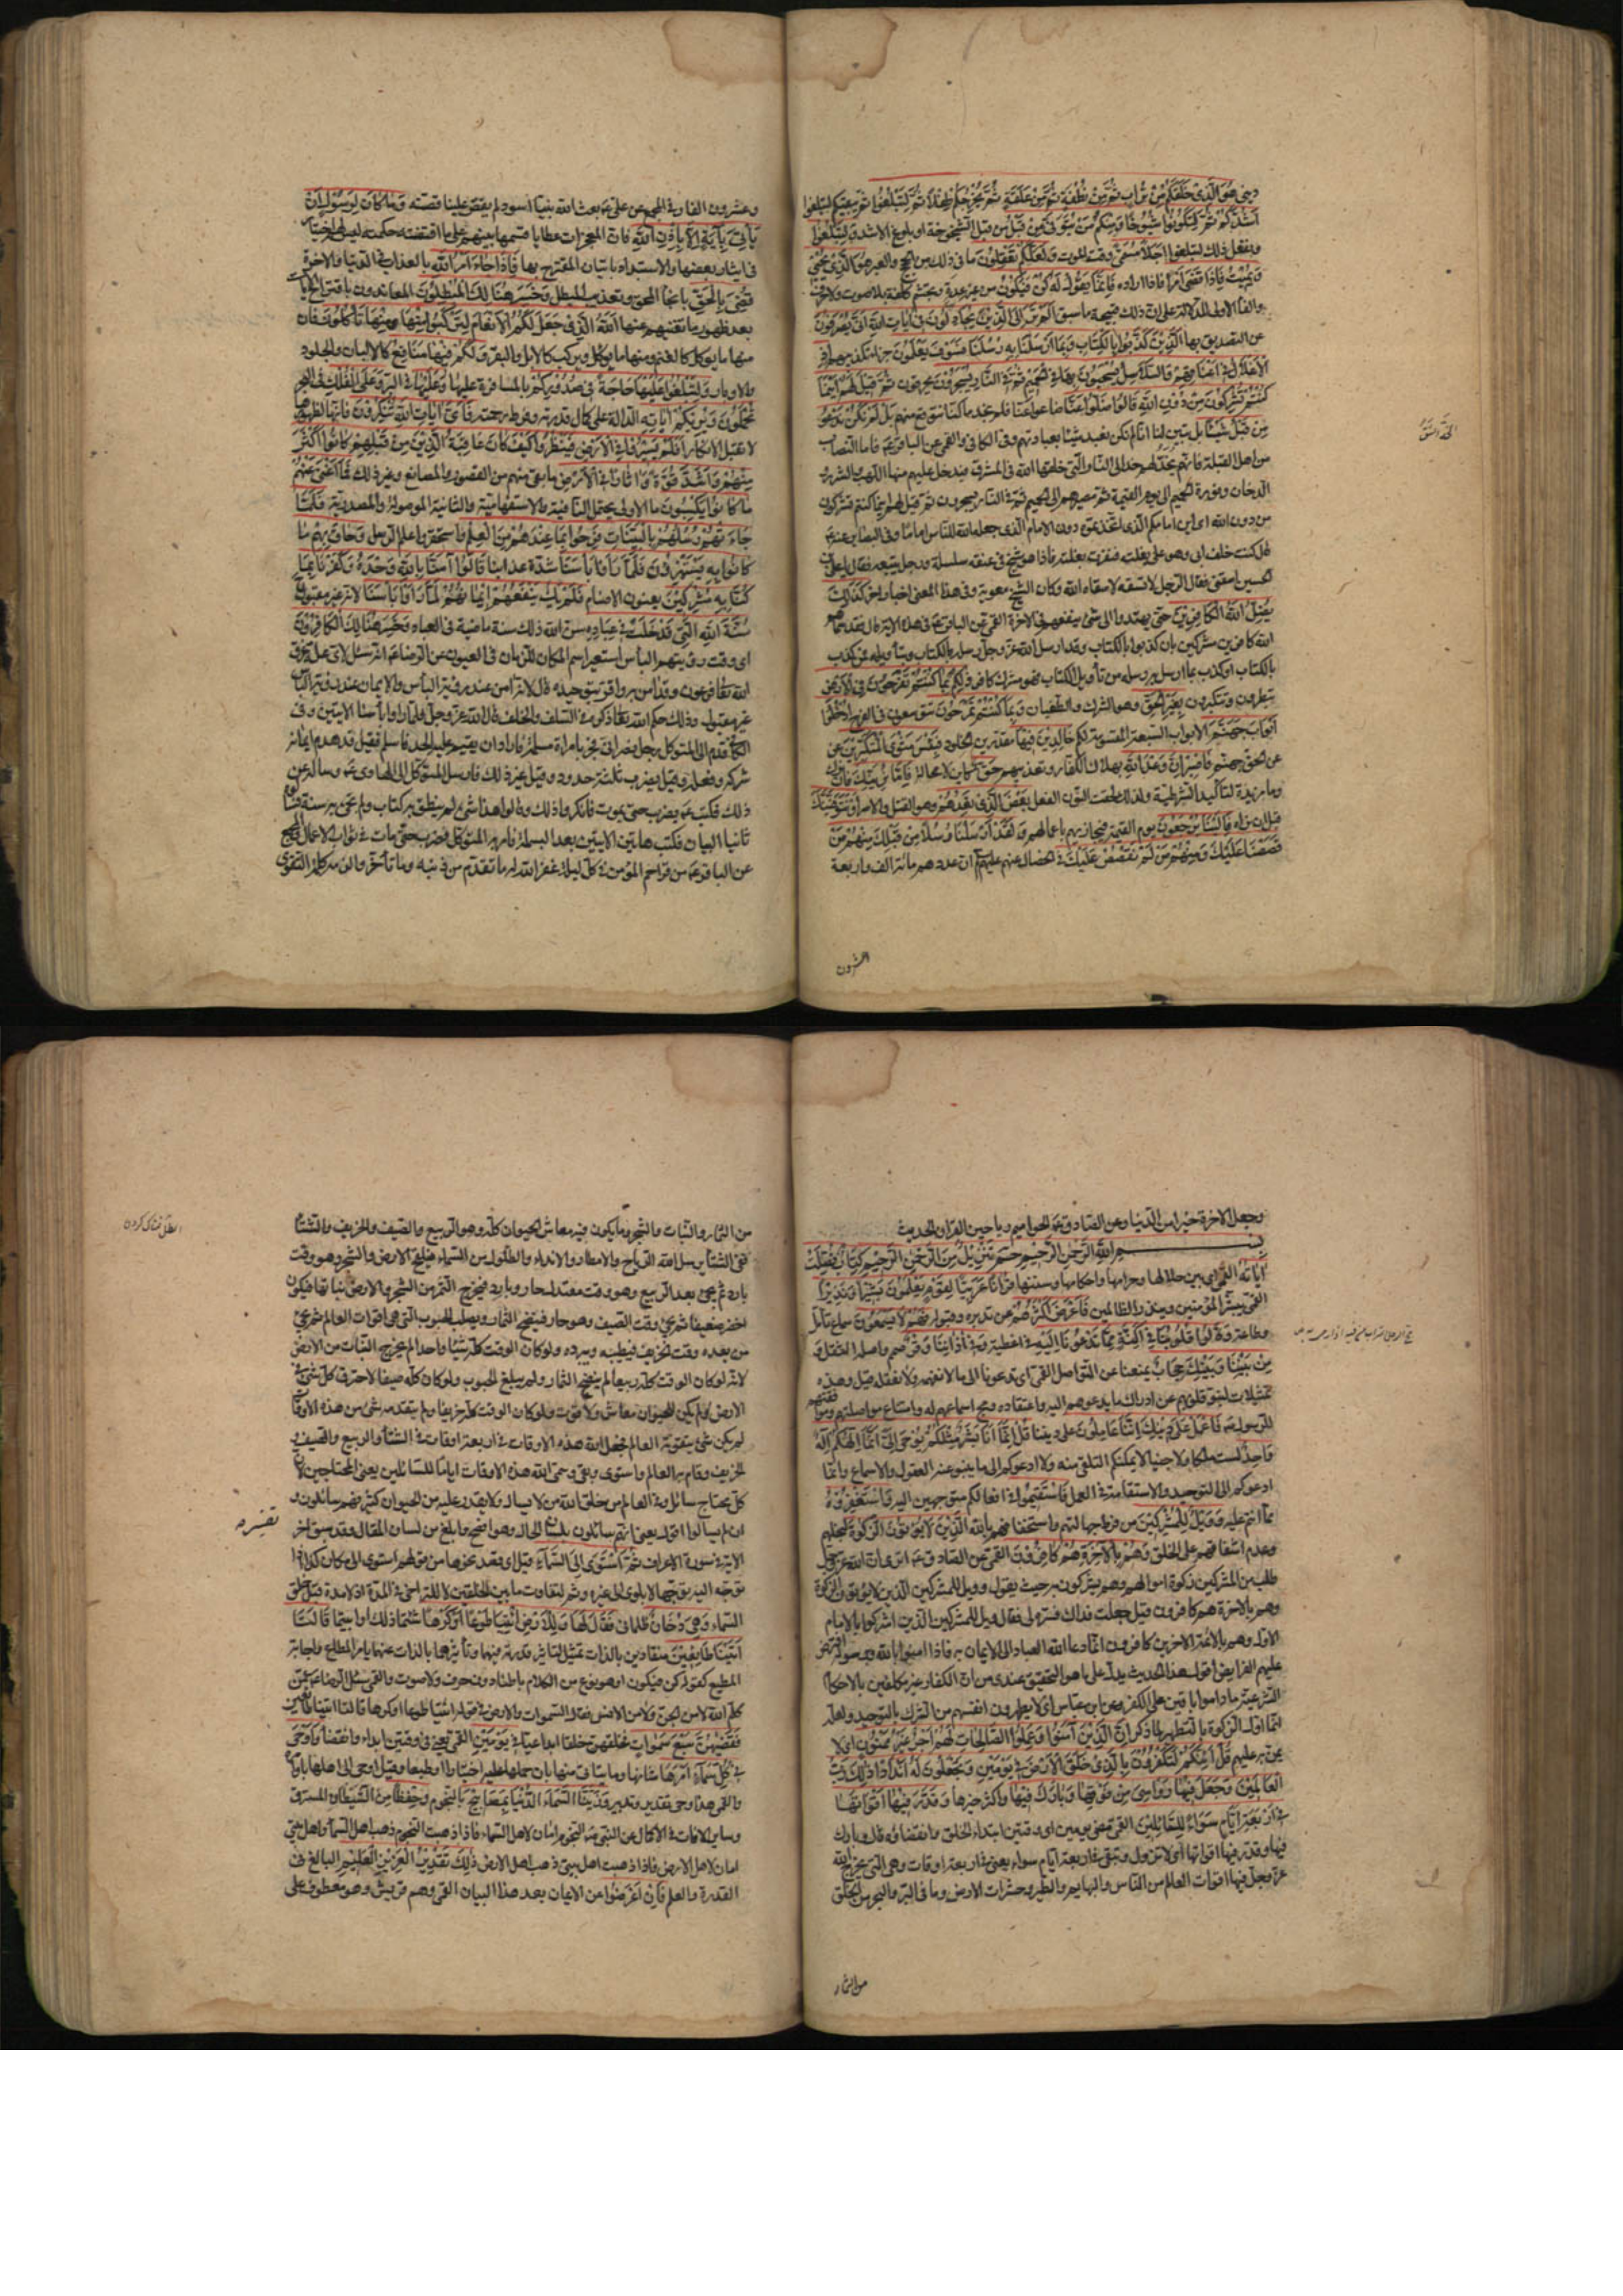 ديني هُوَ الَّذِي خَلَقَكُمْ مِنْ تُرابٍ ثُمَّ مِنْ نُطْفَةٍ ثُمَّ مِنْ عَلَقَةٍ ثُمَّ يُخْرِجُكُمْ طِفْلاً ثُمَّ لِتَبْلُغُوا ثم يبقيكم لتبلغوا
أَشُدَّكُمْ ثُمَّ لِتَكُونُوا شُيُوخًا وَمِنْكُمْ مَنْ يُتَوَفَّى مِنْ قَبْلُ من قبل الشيخوخة او بلوغ الاشد وَلِتَبْلُغُوا
ويفعل ذلك لتبلغوا أَجَلاً مُسَمًّى وقت الموت وَلَعَلَّكُمْ تَعْقِلُونَ ما في ذلك من الحجج والعبر هُوَ الَّذِي يُحْيِي
وَيُمِيتُ فَإِذا قَضى أَمْرًا فاذا اراده فَإِنَّما يَقُولُ لَهُ كُنْ فَيَكُونُ من غير عدة وتجشم كلفة بلا صوت ولا حرف
والفاء الاولى للدلالة على ان ذلك نتيجة ما سبق أَلَمْ تَرَ إِلَى الَّذِينَ يُجادِلُونَ فِي آياتِ اللهِ أَنَّى يُصْرَفُونَ
عن التصديق بها الَّذِينَ كَذَّبُوا بِالْكِتابِ وَبِما أَرْسَلْنا بِهِ رُسُلَنا فَسَوْفَ يَعْلَمُونَ جزاء تكذيبهم إِذِ
الْأَغْلالُ فِي أَعْناقِهِمْ وَالسَّلاسِلُ يُسْحَبُونَ بها فِي الْحَمِيمِ ثُمَّ فِي النَّارِ يُسْجَرُونَ يحرقون ثُمَّ قِيلَ لَهُمْ أَيْنَما
كُنْتُمْ تُشْرِكُونَ مِنْ دُونِ اللهِ قالُوا ضَلُّوا عَنَّا ضاعوا عنا فلم نجد ما كنا نتوقع منهم بَلْ لَمْ نَكُنْ نَدْعُو
مِنْ قَبْلُ شَيْئًا بل تبين لنا انا لم نكن نعبد شيئا بعبادتهم وفي الكافي والقمي عن الباقر ع فاما النصاب
من اهل القبلة فانهم يخد لهم خدا الى النار التي خلقها الله في المشرق فيدخل عليهم منها اللهب والشرر و
الدخان وفورة الحميم الى يوم القيمة ثم مصيرهم الى الحميم ثم في النار يسجرون ثم قيل لهم اينما كنتم تشركون
من دون الله اي اين امامكم الذي اتخذتموه دون الامام الذي جعله الله للناس اماما وفي البصائر عنه ع
قال كنت خلف ابي وهو على بغلته فنفرت بغلته فاذا هو شيخ في عنقه سلسلة ورجل يتبعه فقال يا علي بن
الحسين اسقني فقال الرجل لا تسقه لا سقاه الله وكان الشيخ معوية وفي هذا المعنى اخبار اخر كَذلِكَ
يُضِلُّ اللهُ الْكافِرِينَ حتى يهتدوا الى شيء ينفعهم في الاخرة القمي عن الباقر ع في هذه الاية قال فقد سماهم
الله كافرين مشركين بان كذبوا بالكتاب وقد ارسل الله عز وجل رسله بالكتاب وبتأويله فمن كذب
بالكتاب او كذب بما ارسل به رسله من تأويل الكتاب فهو مشرك كافر ذلِكُمْ بِما كُنْتُمْ تَفْرَحُونَ فِي الْأَرْضِ
تبطرون وتتكبرون بِغَيْرِ الْحَقِّ وهو الشرك والطغيان وَبِما كُنْتُمْ تَمْرَحُونَ تتوسعون في الفرح ادْخُلُوا
أَبْوابَ جَهَنَّمَ الابواب السبعة المقسومة لكم خالِدِينَ فِيها مقدرين الخلود فَبِئْسَ مَثْوَى الْمُتَكَبِّرِينَ عن
عن الحق جهنم فَاصْبِرْ إِنَّ وَعْدَ اللهِ بهلاك الكفار وتعذيبهم حَقٌّ كائن لا محالة فَإِمَّا نُرِيَنَّكَ فان نرك
وما مزيدة لتاكيد الشرطية ولذلك لحقت النون الفعل بَعْضَ الَّذِي نَعِدُهُمْ وهو القتل والاسر أَوْ نَتَوَفَّيَنَّكَ
قبل ان تراه فَإِلَيْنا يُرْجَعُونَ يوم القيمة فنجازيهم باعمالهم وَلَقَدْ أَرْسَلْنا رُسُلاً مِنْ قَبْلِكَ مِنْهُمْ مَنْ
قَصَصْنا عَلَيْكَ وَمِنْهُمْ مَنْ لَمْ نَقْصُصْ عَلَيْكَ في الخصال عنهم عليهم ان عددهم مائة الف واربعة
وعشرون الفا وفي المجمع عن علي ع بعث الله نبيا اسود لم يقص علينا قصته وَما كانَ لِرَسُولٍ أَنْ
يَأْتِيَ بِآيَةٍ إِلاَّ بِإِذْنِ اللهِ فان المعجزات عطايا قسمها بينهم على ما اقتضته حكمته ليس لهم اختيار
في ايثار بعضها والاستبداد باتيان المقترح بها فَإِذا جاءَ أَمْرُ اللهِ بالعذاب في الدنيا والاخرة
قُضِيَ بِالْحَقِّ بانجاء المحق وتعذيب المبطل وَخَسِرَ هُنالِكَ الْمُبْطِلُونَ المعاندون باقتراح الايات
بعد ظهور ما يغنيهم عنها اللهُ الَّذِي جَعَلَ لَكُمُ الْأَنْعامَ لِتَرْكَبُوا مِنْها وَمِنْها تَأْكُلُونَ فان
منها ما يؤكل كالغنم ومنها ما يؤكل ويركب كالابل والبقر وَلَكُمْ فِيها مَنافِعُ كالالبان والجلود
والاوبار وَلِتَبْلُغُوا عَلَيْها حاجَةً فِي صُدُورِكُمْ بالمسافرة عليها وَعَلَيْها في البر وَعَلَى الْفُلْكِ في البحر
تُحْمَلُونَ وَيُرِيكُمْ آياتِهِ الدالة على كمال قدرته وفرط رحمته فَأَيَّ آياتِ اللهِ تُنْكِرُونَ فانها لظهورها
لا تقبل الانكار أَفَلَمْ يَسِيرُوا فِي الْأَرْضِ فَيَنْظُرُوا كَيْفَ كانَ عاقِبَةُ الَّذِينَ مِنْ قَبْلِهِمْ كانُوا أَكْثَرَ
مِنْهُمْ وَأَشَدَّ قُوَّةً وَآثارًا فِي الْأَرْضِ ما بقي منهم من القصور والمصانع وغير ذلك فَما أَغْنى عَنْهُمْ
ما كانُوا يَكْسِبُونَ ما الاولى يحتمل النافية والاستفهامية والثانية الموصولة والمصدرية فَلَمَّا
جاءَتْهُمْ رُسُلُهُمْ بِالْبَيِّناتِ فَرِحُوا بِما عِنْدَهُمْ مِنَ الْعِلْمِ واستحقروا علم الرسل وَحاقَ بِهِمْ ما
كانُوا بِهِ يَسْتَهْزِؤُنَ فَلَمَّا رَأَوْا بَأْسَنا شدة عذابنا قالُوا آمَنَّا بِاللهِ وَحْدَهُ وَكَفَرْنا بِما
كُنَّا بِهِ مُشْرِكِينَ يعنون الاصنام فَلَمْ يَكُ يَنْفَعُهُمْ إِيمانُهُمْ لَمَّا رَأَوْا بَأْسَنا لانه غير مقبول ح
سُنَّتَ اللهِ الَّتِي قَدْ خَلَتْ فِي عِبادِهِ سن الله ذلك سنة ماضية في العباد وَخَسِرَ هُنالِكَ الْكافِرُونَ
اي وقت رؤيتهم البأس استعير اسم المكان للزمان في العيون عن الرضا ع انه سئل لاي علة غرق
الله تعالى فرعون وقد امن به واقر بتوحيده قال لانه امن عند رؤية البأس والايمان عند رؤية البأس
غير مقبول وذلك حكم الله تعالى ذكره في السلف والخلف قال الله عز وجل فلما راوا بأسنا الايتين وفي
الكافي قدم الى المتوكل رجل نصراني فجر بامراة مسلمة فاراد ان يقيم عليه الحد فاسلم فقيل قد هدم ايمانه
شركه وفعله وقيل يضرب ثلثة حدود وقيل غير ذلك فارسل المتوكل الى الهادي ع وساله عن
ذلك فكتب ع يضرب حتى يموت فانكروا ذلك وقالوا هذا شيء لم ينطق به كتاب ولم تجئ به سنة
ثانيا البيان فكتب هاتين الايتين بعد البسملة فامر به المتوكل فضرب حتى مات في ثواب الاعمال والمجمع
عن الباقر ع من قرا حم المؤمن في كل ليلة غفر الله له ما تقدم من ذنبه وما تأخر والزمه كلمة التقوى
وجعل الاخرة خيرا من الدنيا وعن الصادق ع الحواميم رياحين القران الحديث
بسم الله الرحمن الرحيم حم تَنْزِيلٌ مِنَ الرَّحْمنِ الرَّحِيمِ كِتابٌ فُصِّلَتْ
آياتُهُ القمي اي بين حلالها وحرامها واحكامها وسننها قُرْآنًا عَرَبِيًّا لِقَوْمٍ يَعْلَمُونَ بَشِيرًا وَنَذِيرًا
القمي يبشر المؤمنين وينذر الظالمين فَأَعْرَضَ أَكْثَرُهُمْ عن تدبره وقبوله فَهُمْ لا يَسْمَعُونَ سماع تأمل
وطاعة وَقالُوا قُلُوبُنا فِي أَكِنَّةٍ مِمَّا تَدْعُونا إِلَيْهِ في اغطية وَفِي آذانِنا وَقْرٌ صمم واصله الثقل وَ
مِنْ بَيْنِنا وَبَيْنِكَ حِجابٌ يمنعنا عن التواصل القمي اي تدعونا الى ما لا نفهمه ولا نعقله قيل وهذه
تمثيلات لنبو قلوبهم عن ادراك ما يدعوهم اليه واعتقاده ومج اسماعهم له وامتناع مواصلتهم وموافقتهم
للرسول ص فَاعْمَلْ على دينك إِنَّنا عامِلُونَ على ديننا قُلْ إِنَّما أَنَا بَشَرٌ مِثْلُكُمْ يُوحى إِلَيَّ أَنَّما إِلهُكُمْ إِلهٌ
واحِدٌ لست ملكا ولا جنيا لا يمكنكم التلقي منه ولا ادعوكم الى ما ينبو عنه العقول والاسماع وانما
ادعوكم الى التوحيد والاستقامة في العمل فَاسْتَقِيمُوا في افعالكم متوجهين اليه وَاسْتَغْفِرُوهُ
مما انتم عليه وَوَيْلٌ لِلْمُشْرِكِينَ من فرط جهالتهم واستخفافهم بالله الَّذِينَ لا يُؤْتُونَ الزَّكاةَ لبخلهم
وعدم اشفاقهم على الخلق وَهُمْ بِالْآخِرَةِ هُمْ كافِرُونَ القمي عن الصادق ع اترى ان الله عز وجل
طلب من المشركين زكوة اموالهم وهم يشركون به حيث يقول وويل للمشركين الذين لا يؤتون الزكوة
وهم بالاخرة هم كافرون قيل جعلت فداك فسره لي فقال ويل للمشركين الذين اشركوا بالامام
الاول وهم بالائمة الاخرين كافرون انما دعا الله العباد الى الايمان به فاذا امنوا بالله وبرسوله افترض
عليهم الفرايض اقول هذا الحديث يدل على ما هو التحقيق عندي من ان الكفار غير مكلفين بالاحكام
الشرعية ما داموا باقين على الكفر وعن ابن عباس اي لا يطهرون انفسهم من الشرك بالتوحيد ولعله
انما اول الزكوة بالتطهير لما ذكر إِنَّ الَّذِينَ آمَنُوا وَعَمِلُوا الصَّالِحاتِ لَهُمْ أَجْرٌ غَيْرُ مَمْنُونٍ اي لا
يمن به عليهم قُلْ أَإِنَّكُمْ لَتَكْفُرُونَ بِالَّذِي خَلَقَ الْأَرْضَ فِي يَوْمَيْنِ وَتَجْعَلُونَ لَهُ أَنْدادًا ذلِكَ رَبُّ
الْعالَمِينَ وَجَعَلَ فِيها رَواسِيَ مِنْ فَوْقِها وَبارَكَ فِيها واكثر خيرها وَقَدَّرَ فِيها أَقْواتَها
فِي أَرْبَعَةِ أَيَّامٍ سَواءً لِلسَّائِلِينَ القمي معنى يومين اي وقتين ابتداء الخلق وانقضاؤه قال وبارك
فيها وقدر فيها اقواتها اي لا تزول وتبقى في اربعة ايام سواء يعني في اربعة اوقات وهي التي يخرج الله
عز وجل فيها اقوات العالم من الناس والبهايم والطير وحشرات الارض وما في البر والبحر من الخلق
من الثمار
من الثمار والنبات والشجر وما يكون فيه معاش الحيوان كله وهو الربيع والصيف والخريف والشتاء
ففي الشتاء يرسل الله الرياح والامطار والانداء والطلول من السماء فيلقح الارض والشجر وهو وقت
بارد ثم يجئ بعده الربيع وهو وقت معتدل حار وبارد فيخرج الثمر من الشجر والارض نباتها فيكون
اخضر ضعيفا ثم يجئ وقت الصيف وهو حار فينضج الثمار ويصلب الحبوب التي هي اقوات العالم ثم يجئ
من بعده وقت الخريف فيطيبه ويبرده ولو كان الوقت كله شيئا واحدا لم يخرج النبات من الارض
لانه لو كان الوقت كله ربيعا لم ينضج الثمار ولم يبلغ الحبوب ولو كان كله صيفا لاحترق كل شيء في
الارض ولم يكن للحيوان معاش ولا قوت ولو كان الوقت كله خريفا ولم يتقدمه شيء من هذه الاوقات
لم يكن شيء يتقوته العالم فجعل الله هذه الاوقات في اربعة اوقات في الشتاء والربيع والصيف و
الخريف وقام به العالم واستوى وبقي وسمى الله هذه الاوقات اياما للسائلين يعني المحتاجين لان
كل محتاج سائل وفي العالم من خلق الله من لا يسال ولا يقدر عليه من الحيوان كثير فهم سائلون و
ان لم يسالوا اقول يعني انهم سائلون بلسان الحال وهو افصح وابلغ من لسان المقال وقد سبق اخر
الاية في سورة الاعراف ثُمَّ اسْتَوى إِلَى السَّماءِ قيل اي قصد نحوها من قولهم استوى الى مكان كذا اذا
توجه اليه توجها لا يلوي على غيره وثم لتفاوت ما بين الخلقين لا للتراخي في المدة اذ لا مدة قبل خلق
السماء وَهِيَ دُخانٌ ظلماني فَقالَ لَها وَلِلْأَرْضِ ائْتِيا طَوْعًا أَوْ كَرْهًا شئتما ذلك او ابيتما قالَتا
أَتَيْنا طائِعِينَ منقادين بالذات تمثيل لتاثير قدرته فيهما وتأثرهما بالذات عنها بامر المطاع واجابة
المطيع كقوله كن فيكون او هو نوع من الكلام باطنا دون حرف ولا صوت والقمي سئل الرضا ع عمن
كلم الله لا من الجن ولا من الانس فقال السموات والارض في قوله ائتيا طوعا او كرها قالتا اتينا طائعين
فَقَضاهُنَّ سَبْعَ سَماواتٍ فخلقهن خلقا ابداعيا فِي يَوْمَيْنِ القمي يعني في وقتين ابداء وانقضاء وَأَوْحى
فِي كُلِّ سَماءٍ أَمْرَها شانها وما يتاتى منها بان حملها عليه اختيارا او طبعا وقيل اوحى الى اهلها باوامره
والقمي هذا وحي تقدير وتدبير وَزَيَّنَّا السَّماءَ الدُّنْيا بِمَصابِيحَ بالنجوم وَحِفْظًا من الشيطان المسترق
وساير الافات في الاكمال عن النبي ص النجوم امان لاهل السماء فاذا ذهبت النجوم ذهب اهل السماء واهل بيتي
امان لاهل الارض فاذا ذهبت اهل بيتي ذهب اهل الارض ذلِكَ تَقْدِيرُ الْعَزِيزِ الْعَلِيمِ البالغ في
القدرة والعلم فَإِنْ أَعْرَضُوا عن الايمان بعد هذا البيان القمي وهم قريش وهو معطوف على